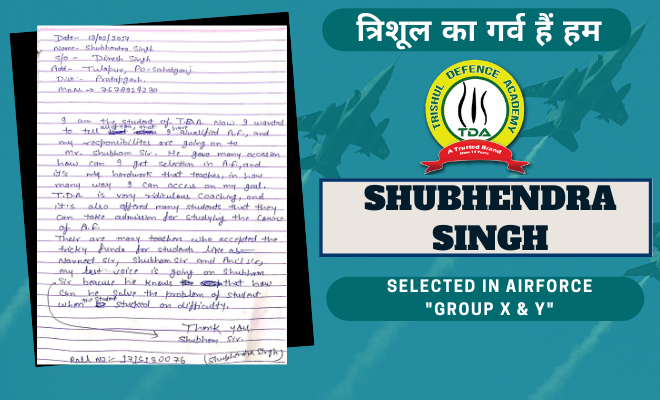 Date- 12/02/2019
Name- Shubhendra Singh
S/o - Dinesh Singh
Add- Tulapur, Po-Sahalganj
Dist:- Pratapgarh.
I am the student of T.D.A. Now I wanted
to tell all of you, that I have Qualified A.F., and
my responsibilites are going on to
Mr. Shubham Sir. He gave many occasion
how can I get selection in A.F, and
it's my hardwork that teaches, in how
many way I can access on my goal.
T.D.A is very ridiculous Coaching, and
it's also offered many students that they
can take admission for studying the Course
of A.F.
Their are many teachers who accepted the
tricky funda for students like as-
Navneet Sir, Shubham Sir and Anil Sir,
my last voice is going on Shubham
Sir because he knows that how
can he solve the problem of student
when the student on difficulty.
Thank you
Shubham Sir.
Roll No:-
(Shubhendra Singh)
त्रिशूल का गर्व हैं हम
TRISHUL DEFENCE ACADEMY
TDA
A Trusted Brand
SHUBHENDRA
SINGH
SELECTED IN AIRFORCE
"GROUP X & Y"